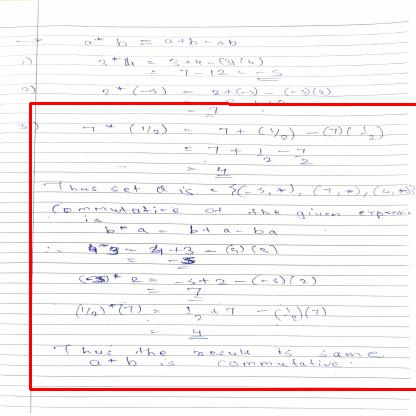 a * b = a + b - ab
1) 3 * 4 = 3 + 4 - (3)(4)
= 7 - 12 = -5
2) 2 * (-5) = 2 + (-5) - (-5)(2)
= 7
3) 7 * (1/2) = 7 + (1/2) - (7)(1/2)
= 7 + 1/2 - 7/2
= 4
Thus set Q is = {(-5, *), (7, *), (4, *)}
Commutative of the given
is
b * a = b + a - ba
∴ 4 * 3 = 4 + 3 -
= -5
(-5) * 2 = -5 + 2 - (-5)(2)
= 7
(1/2) * (7) = 1/2 + 7 - (1/2)(7)
= 4
Thus the result is same
a * b is commutative.